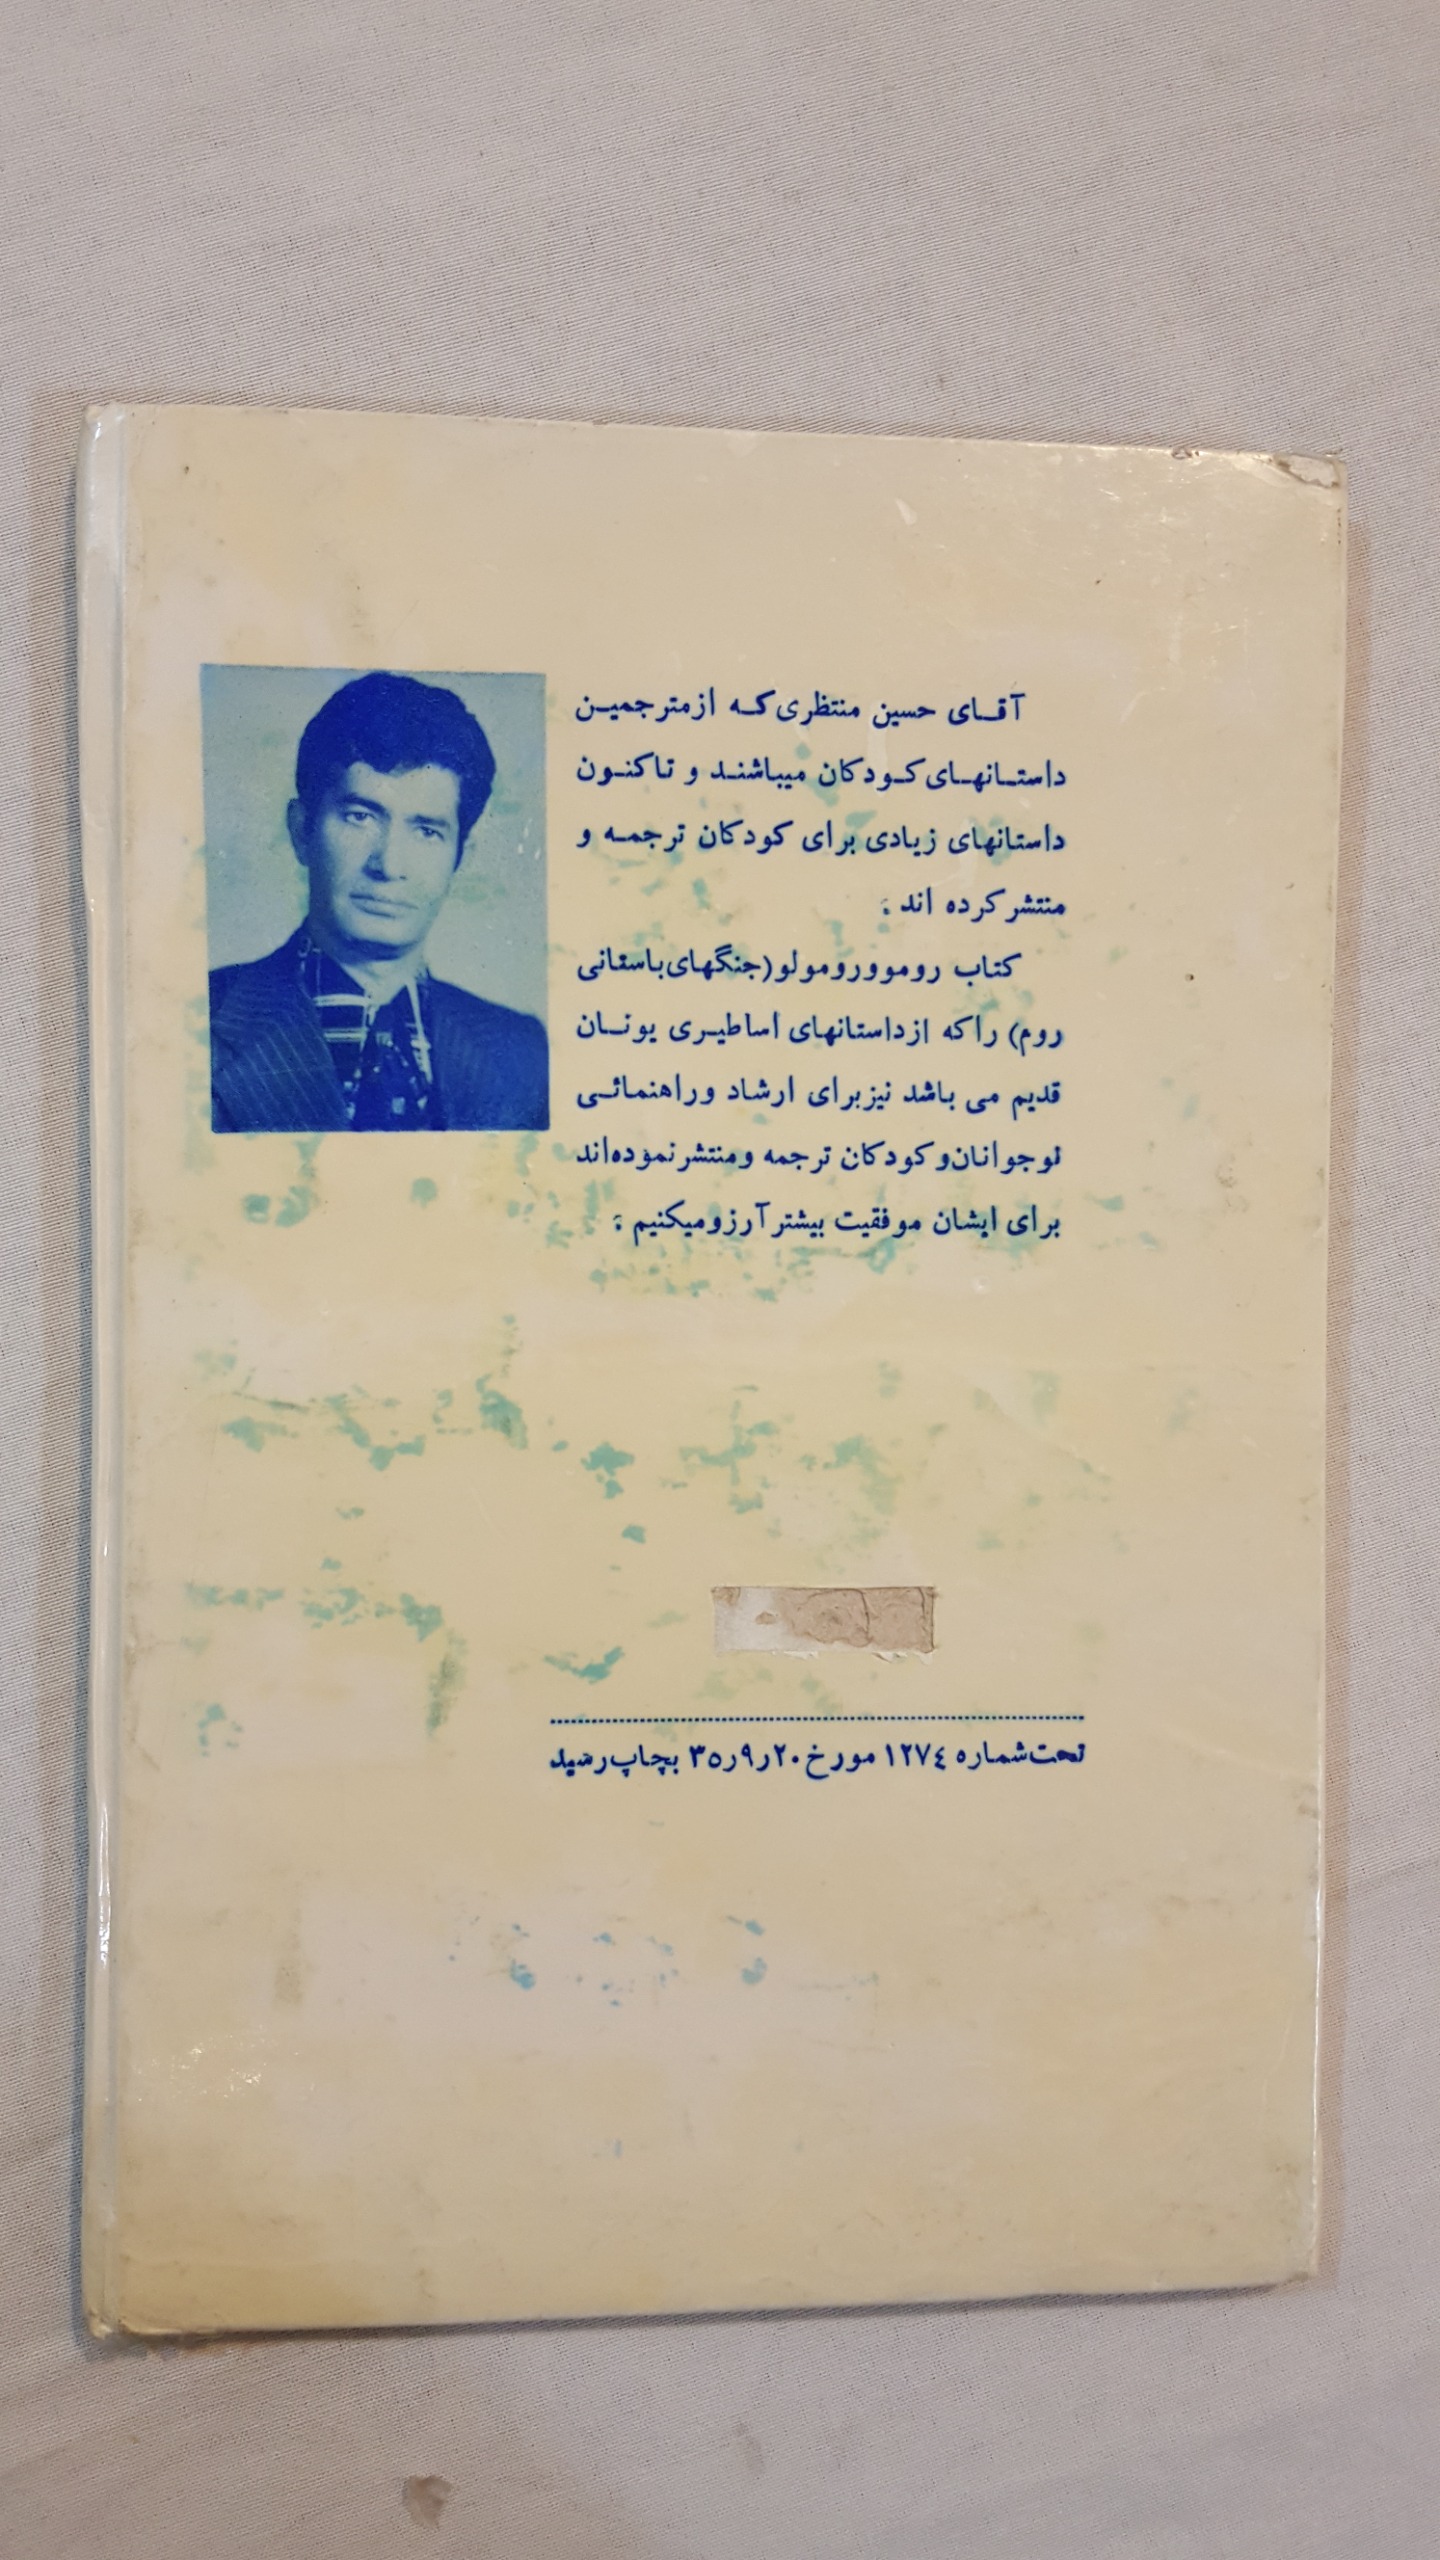 آقای حسین منتظری که از مترجمین
داستانهای کودکان میباشند و تاکنون
داستانهای زیادی برای کودکان ترجمه و
منتشر کرده اند .
کتاب رومو و رومولو (جنگهای باستانی
روم) را که از داستانهای اساطیری یونان
قدیم می باشد نیز برای ارشاد و راهنمائی
نوجوانان و کودکان ترجمه و منتشر نموده‌اند
برای ایشان موفقیت بیشتر آرزو میکنیم .
تحت شماره ۱۲۷٤ مورخ ۲۰ر۹ر۳۵ بچاپ رسید